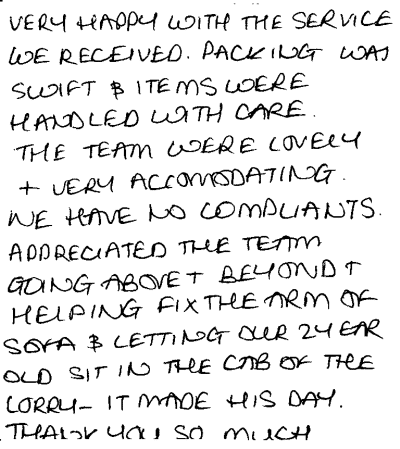 VERY HAPPY WITH THE SERVICE
WE RECEIVED. PACKING WAS
SWIFT & ITEMS WERE
HANDLED WITH CARE.
THE TEAM WERE LOVELY
+ VERY ACCOMODATING.
WE HAVE NO COMPLIANTS.
APPRECIATED THE TEAM
GOING ABOVE + BEYOND +
HELPING FIX THE ARM OF
SOFA & LETTING OUR 2 YEAR
OLD SIT IN THE CAB OF THE
LORRY - IT MADE HIS DAY.
THANK YOU SO MUCH